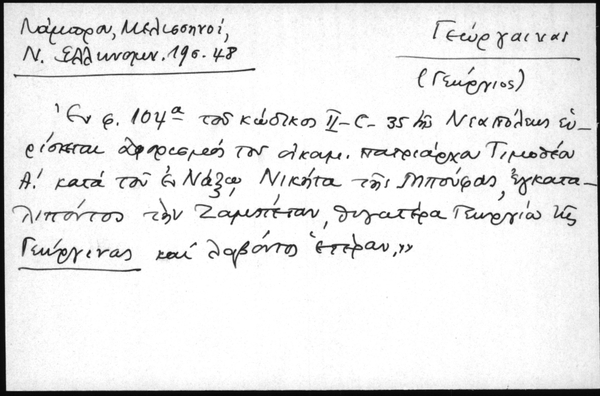 Λάμπρου, Μελισσηνοί,
Ν. Ἑλληνομν. 19σ. 48
Γεώργαινας
(Γεώργιος)
Ἐν φ. 104α τοῦ κώδικος ΙΙ-C-35 τῆς Νεαπόλεως εὑ-
ρίσκεται ἀφορισμὸς τοῦ οἰκουμ. πατριάρχου Τιμοθέου
Α! κατὰ τοῦ ἐν Νάξῳ Νικήτα τῆς Μπούφας, ἐγκατα-
λιπόντος τὴν Ζαμπέταν, θυγατέρα Γεωργίου τῆς
Γεώργενας καὶ λαβόντος ἑτέραν.»